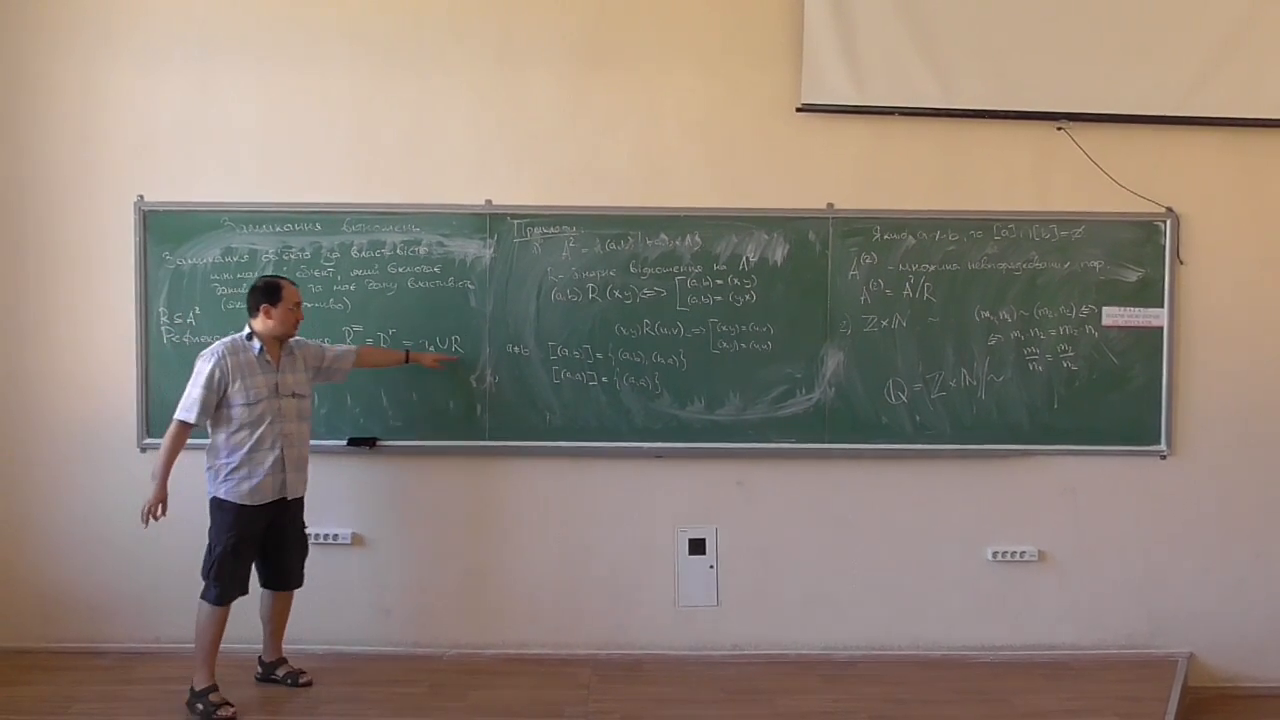 Замикання відношень
Замикання об'єкта за властивістю
мінімальний об'єкт, який включає
даний та має дану властивість
R ⊆ A²
R⁼ = R^r = ∪ R
Приклади.
1) A² = {(a,b) | a,b ∈ A}
R - бінарне відношення на A²
(a,b) R (x,y) ⟺ [ (a,b) = (x,y)
(a,b) = (y,x)
(x,y) R (u,v) ⟹ [ (x,y) = (u,v)
(x,y) = (v,u)
a≠b [(a,b)] = {(a,b), (b,a)}
[(a,a)] = {(a,a)}
то [a] ∩ [b] = ∅
A⁽²⁾ - множина невпорядкованих пар.
A⁽²⁾ = A²/R
2) Z×N ~ (m₁, n₁) ~ (m₂, n₂) ⟺
⟺ m₁ n₂ = m₂ n₁
m₁/n₁ = m₂/n₂
Q = Z×N/~